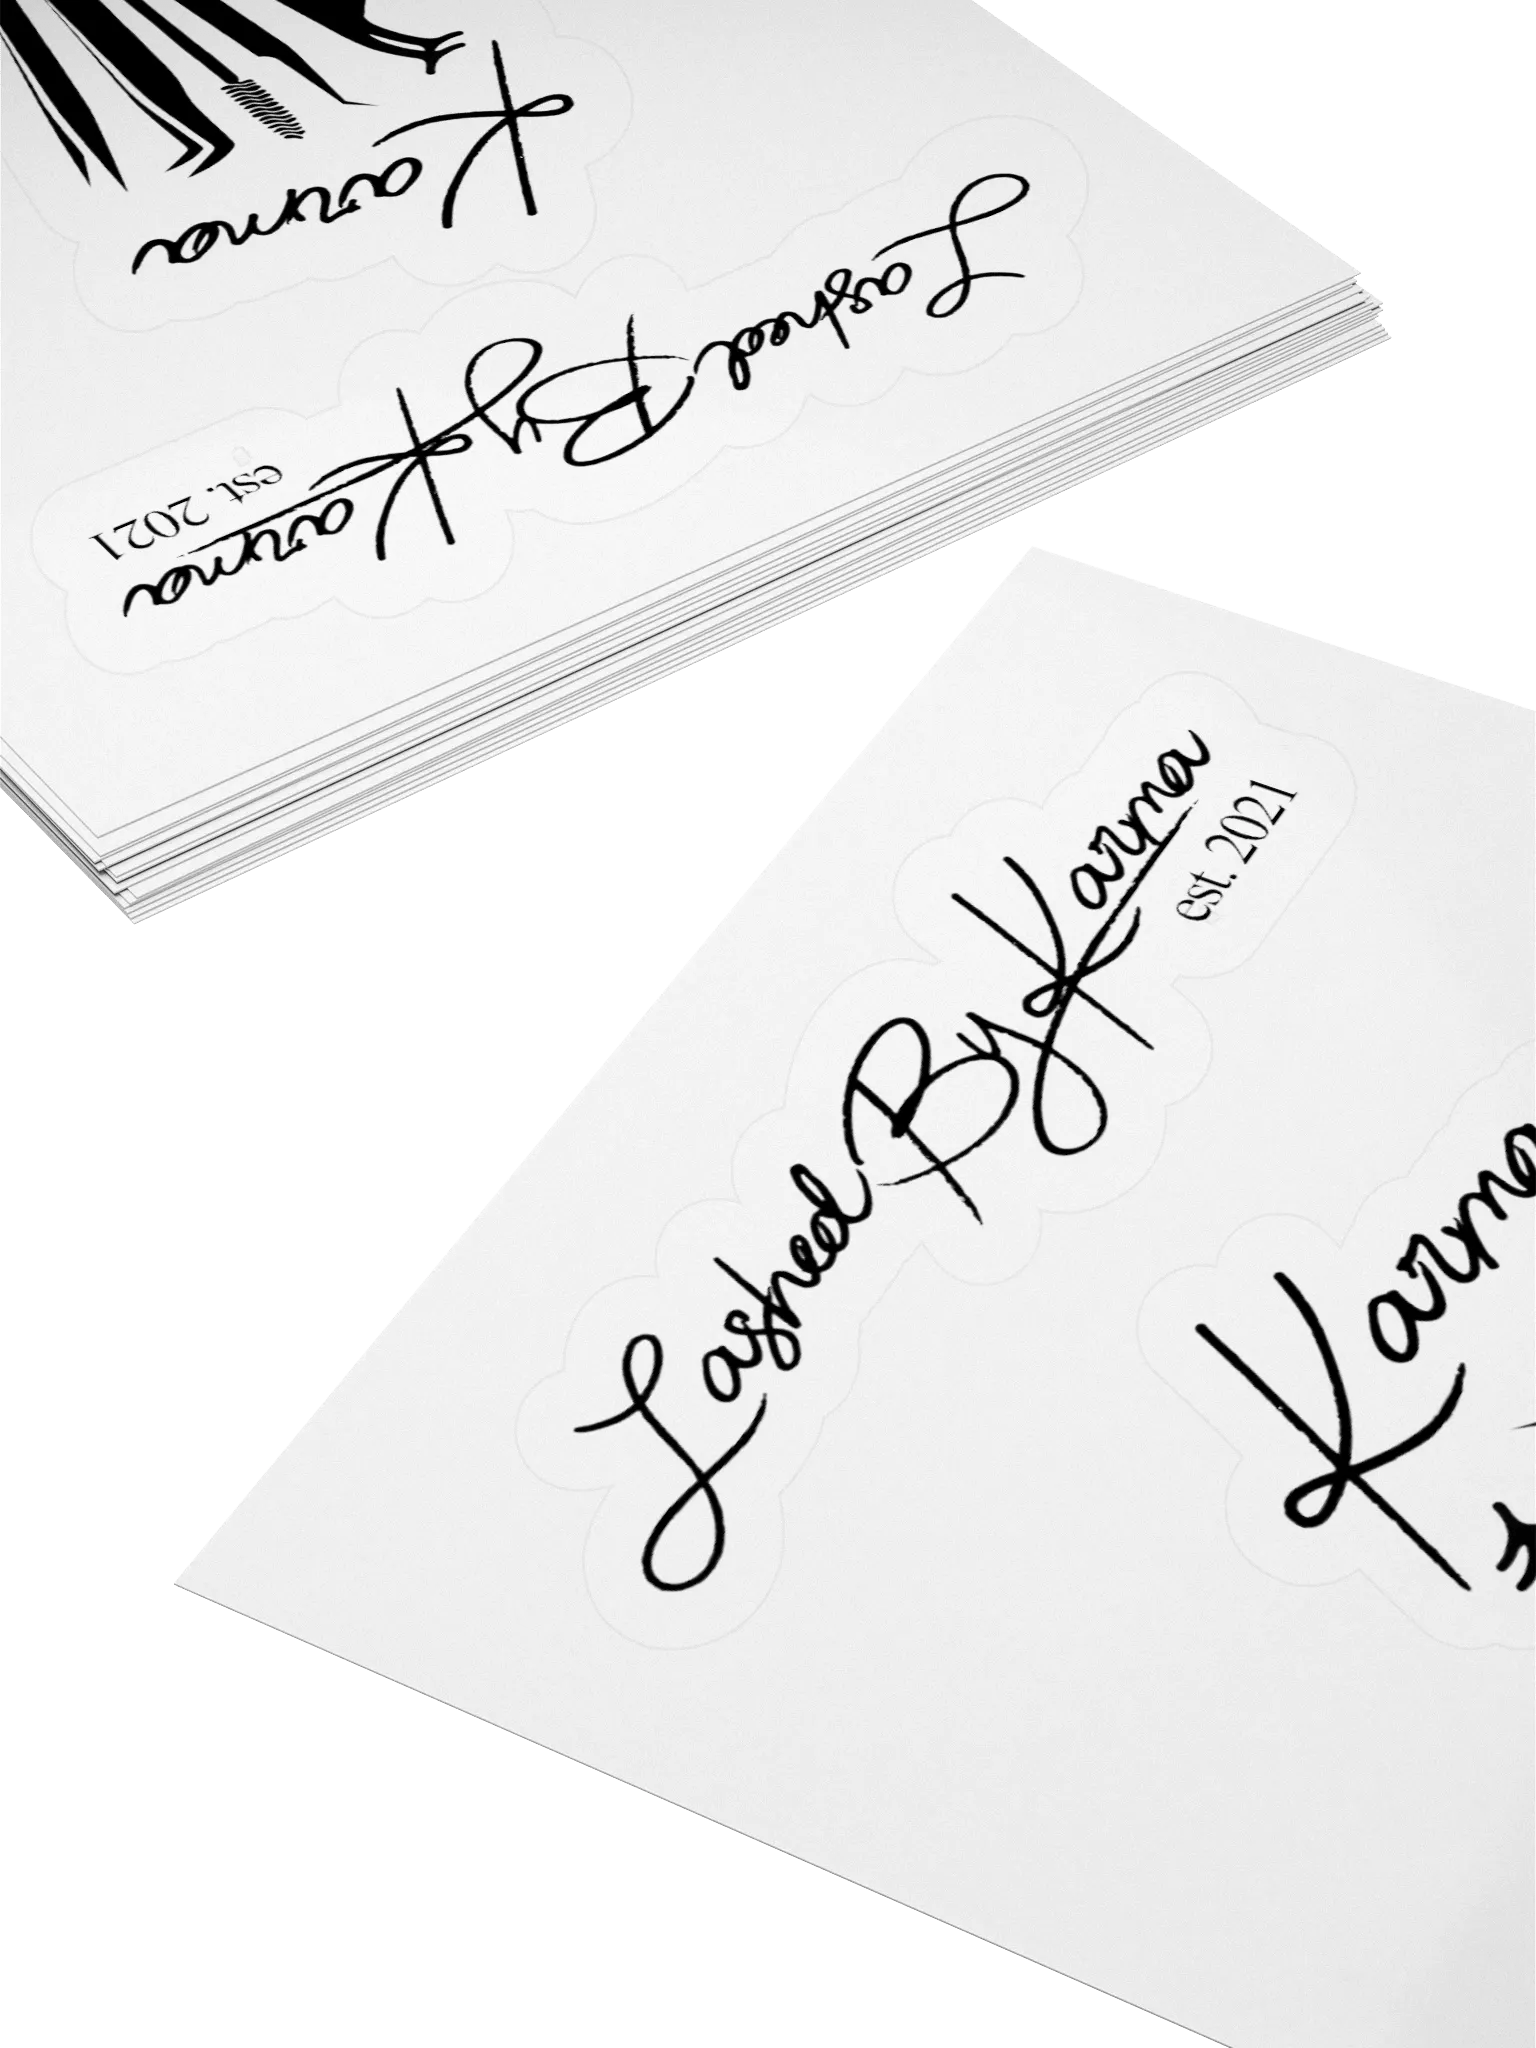 Karma
Lashed By Karma
est. 2021
Lashed By Karma
est. 2021
Karma